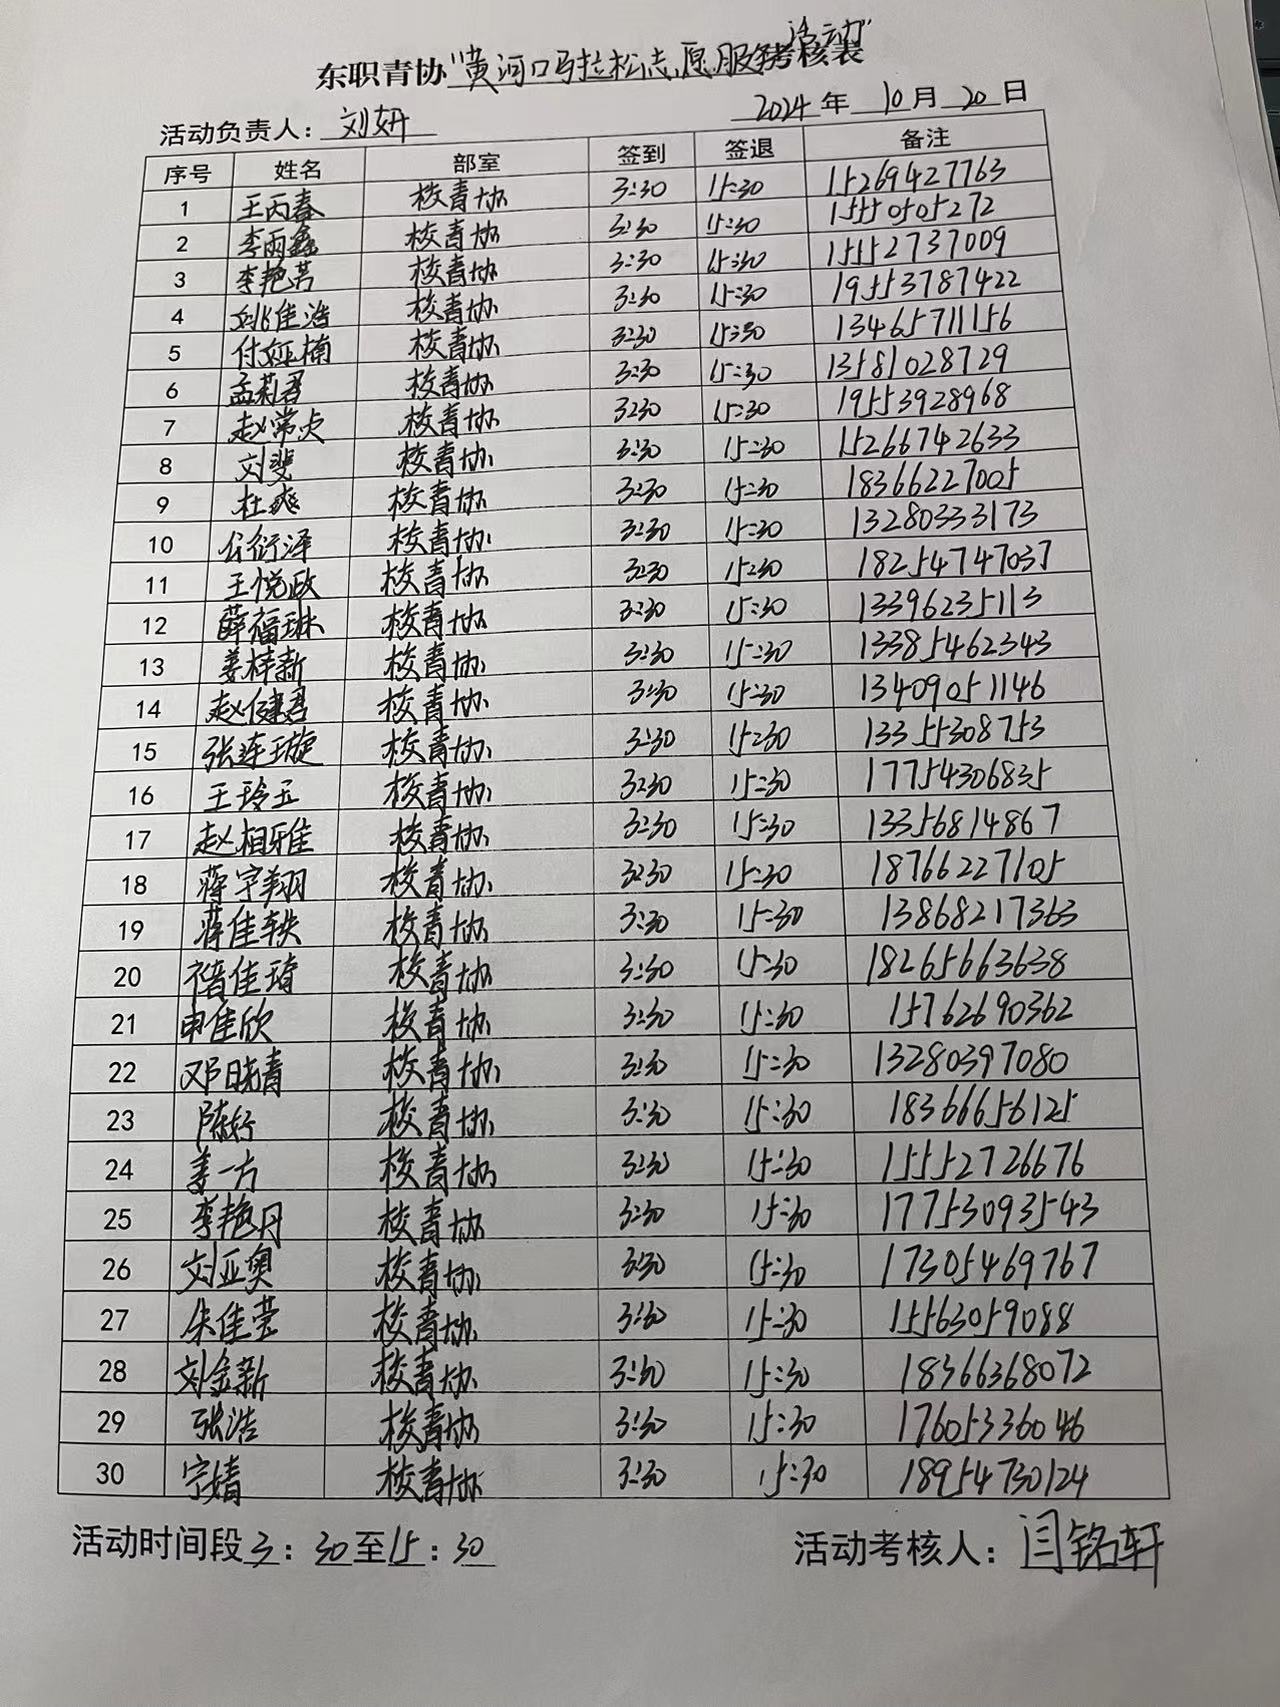 东职青协"黄河口马拉松志愿服务活动"考核表
活动负责人：刘妍 2024年10月20日
序号 姓名 部室 签到 签退 备注
1 王丙春 校青协 3:30 15:30 15269427763
2 李雨鑫 校青协 3:30 15:30 15550505272
3 李艳芳 校青协 3:30 15:30 15552737009
4 姚佳浩 校青协 3:30 15:30 19553787422
5 付亚楠 校青协 3:30 15:30 13465711156
6 孟莉君 校青协 3:30 15:30 13581028729
7 赵常贞 校青协 3:30 15:30 19553928968
8 刘斐 校青协 3:30 15:30 15266742633
9 杜爽 校青协 3:30 15:30 18366227005
10 公衍泽 校青协 3:30 15:30 13280333173
11 王悦政 校青协 3:30 15:30 18254747037
12 薛福琳 校青协 3:30 15:30 13396235113
13 姜梓新 校青协 3:30 15:30 13385462343
14 赵健君 校青协 3:30 15:30 13409051146
15 张连璇 校青协 3:30 15:30 13355308753
16 王玲玉 校青协 3:30 15:30 17754306835
17 赵相雅 校青协 3:30 15:30 13356814867
18 蒋宇翔 校青协 3:30 15:30 18766227105
19 蒋佳轶 校青协 3:30 15:30 13868217363
20 禚佳琦 校青协 3:30 15:30 18265663638
21 申佳欣 校青协 3:30 15:30 15762690362
22 邓晓青 校青协 3:30 15:30 13280397080
23 陈行 校青协 3:30 15:30 18366656125
24 姜一方 校青协 3:30 15:30 15552726676
25 李艳丹 校青协 3:30 15:30 17753093543
26 刘亚奥 校青协 3:30 15:30 17305469767
27 朱佳莹 校青协 3:30 15:30 15563059088
28 刘金新 校青协 3:30 15:30 18366368072
29 张浩 校青协 3:30 15:30 17605336046
30 宁婧 校青协 3:30 15:30 18954730124
活动时间段3：30至15：30 活动考核人：闫铭轩